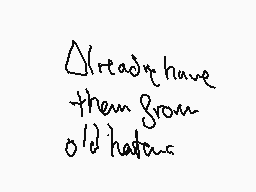 Already have
them from
old hatena